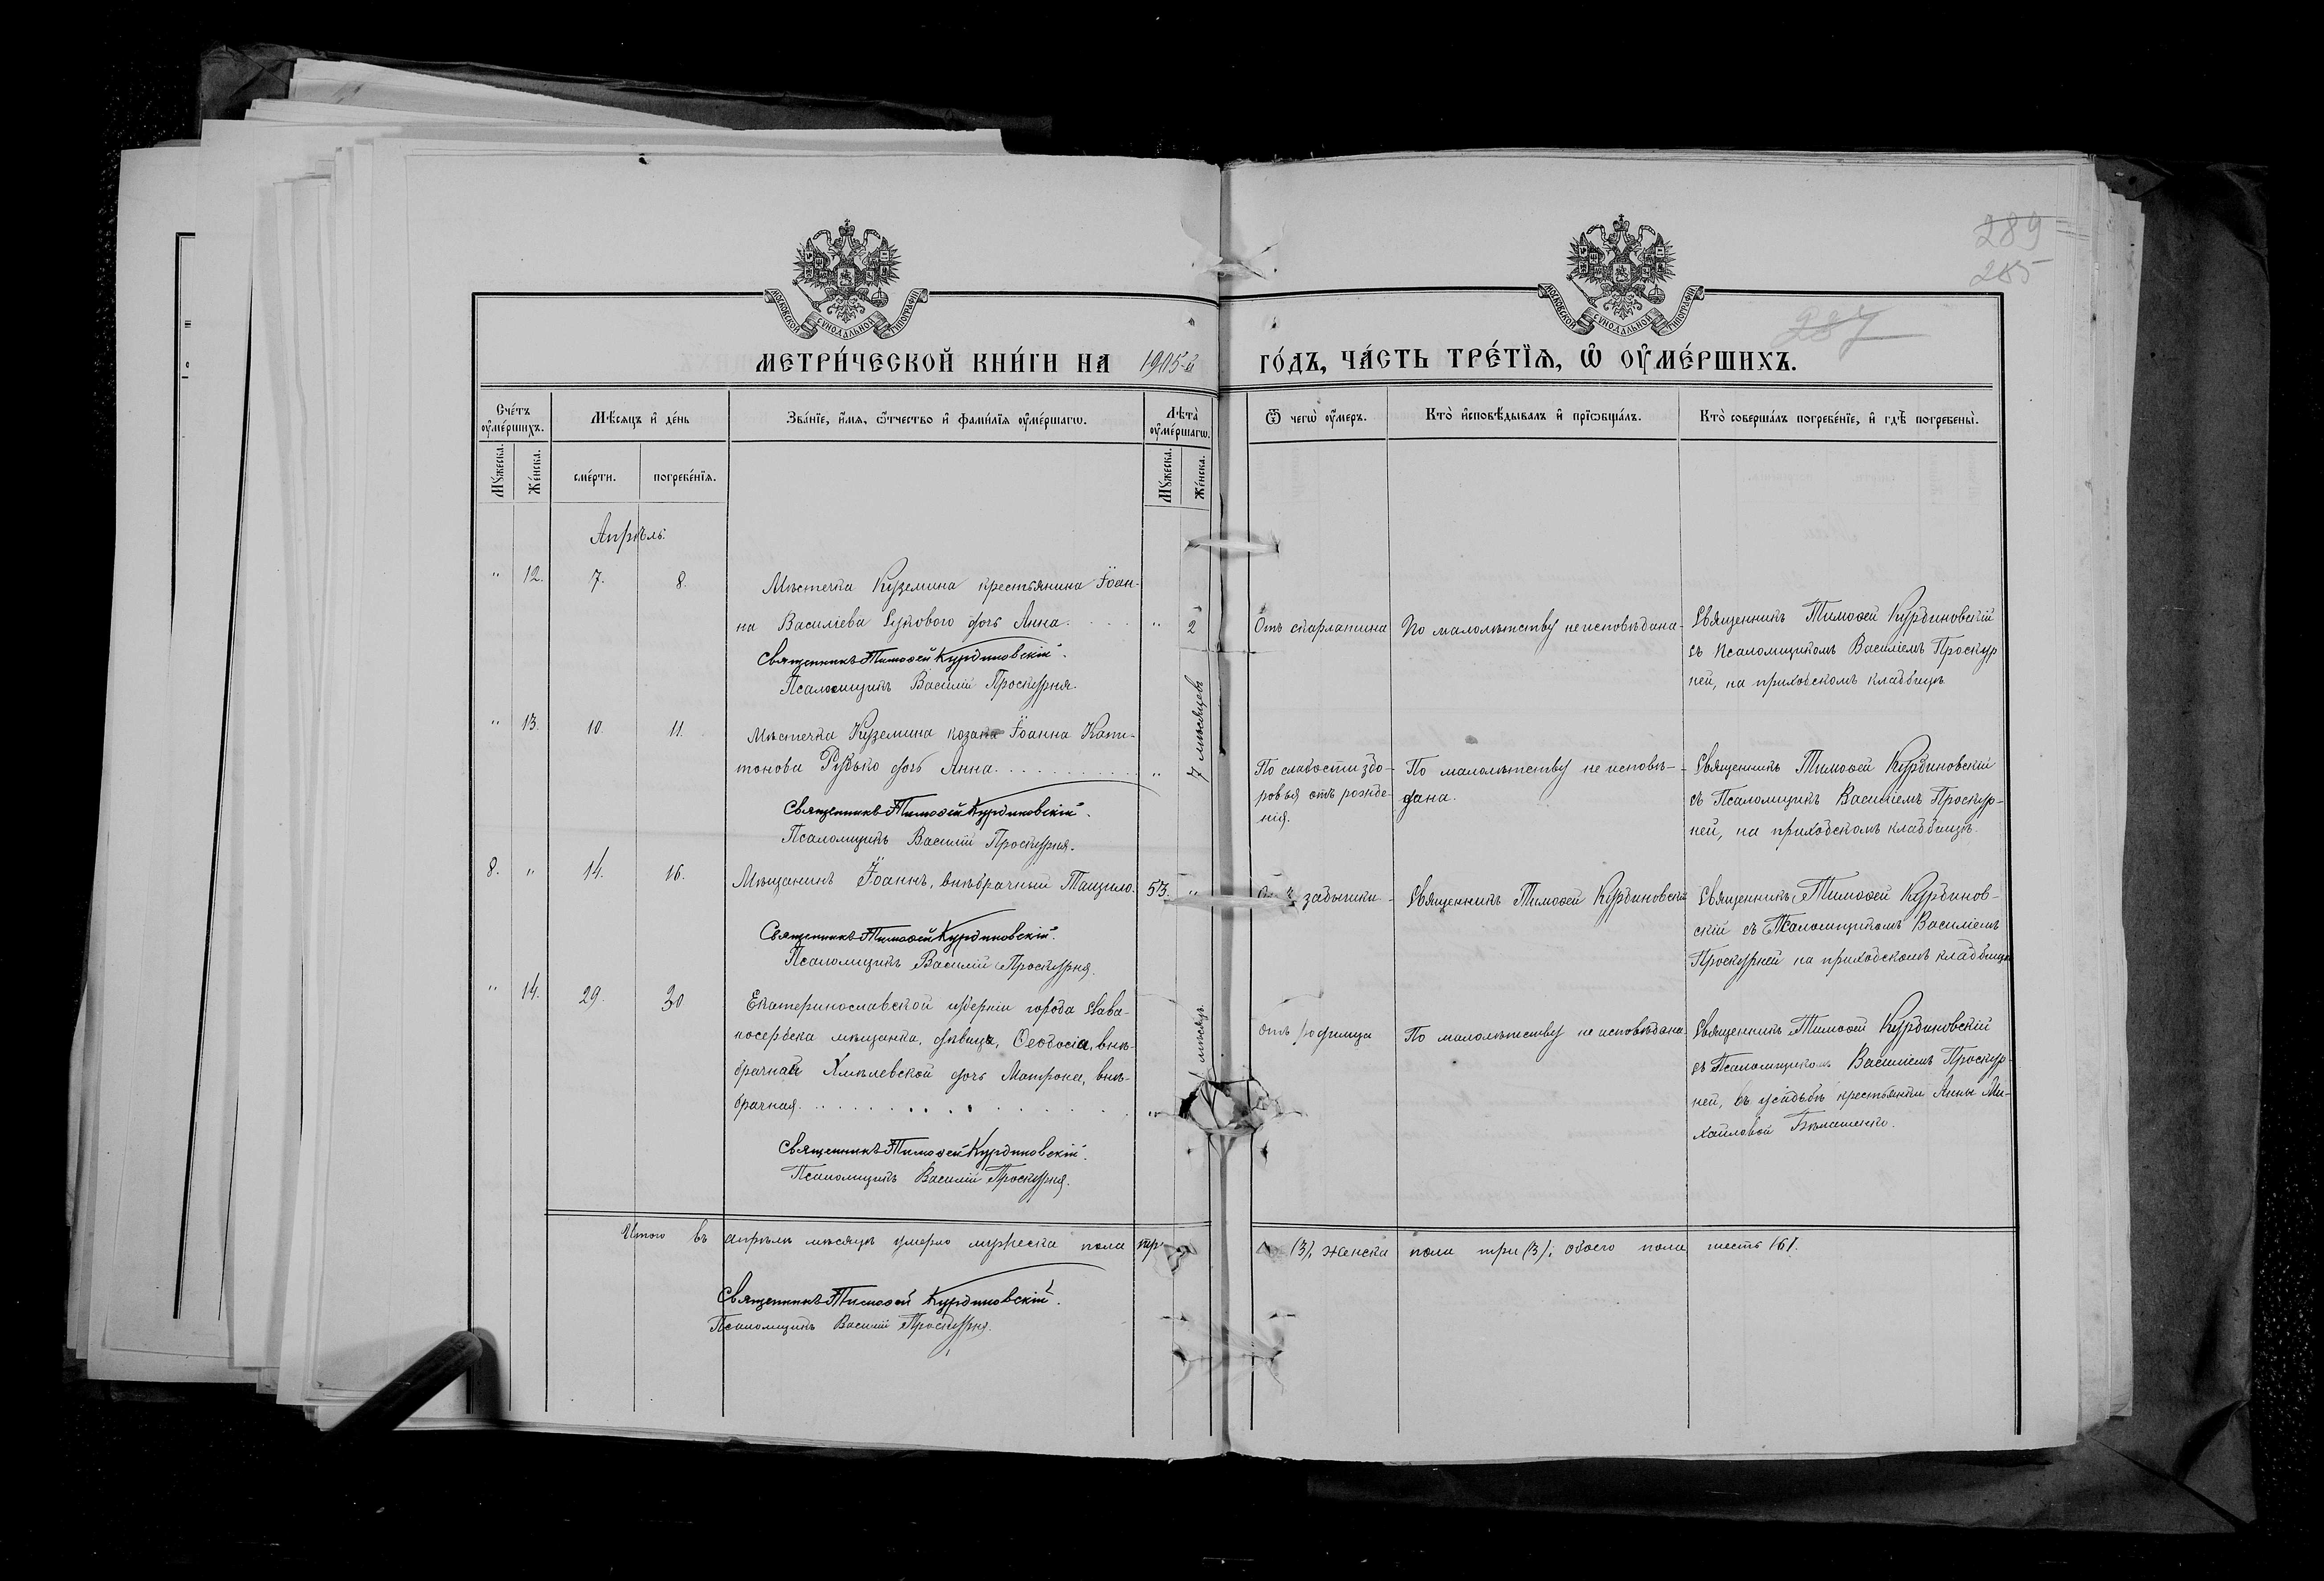 289
285
287
МОСКОВСКОЙ СУНОДАЛЬНОЙ ТИПОГРАФІИ
МОСКОВСКОЙ СУНОДАЛЬНОЙ ТИПОГРАФІИ
МЕТРИ́ЧЕСКОЙ КНИ́ГИ НА 1905-й ГО́ДЪ, ЧА́СТЬ ТРЕ́ТЇѦ, Ѿ ОУ҆МЕ́РШИХЪ.
Сче́тъ оу҆ме́ршихъ.
Мѣ́сяцъ и҆ де́нь
Зва́нїе, и҆́мя, ѻ҆́тчество и҆ фами́лїя оу҆ме́ршагѡ.
Лѣта̀ оу҆ме́ршагѡ.
Ѿ чегѡ̀ оу҆́меръ.
Кто̀ и҆сповѣ́дывалъ и҆ прїѡбща́лъ.
Кто̀ соверша́лъ погребе́нїе, и҆ гдѣ̀ погребены̀.
Му́жеска. Же́нска.
сме́рти. погребе́нїя.
Му́жеска. Же́нска.
Апрѣль.
" 12. 7. 8.
Мѣстечка Куземина крестьянина Іоан-
на Василіева Букового дочь Анна. " 2
Священникъ Тимоѳей Курдиновскій.
Псаломщикъ Василій Проскурня.
Отъ скарлатина
По малолѣтству не исповѣдана
Священникъ Тимоѳей Курдиновскій
съ Псаломщикомъ Василіемъ Проскур
ней, на приходскомъ кладбищѣ
" 13. 10. 11.
Мѣстечка Куземина козака Іоанна Капи-
тонова Рубько дочь Анна. " 7 мѣсяцевъ
Священникъ Тимоѳей Курдиновскій.
Псаломщикъ Василій Проскурня.
По слабости здо-
ровья отъ рожде-
нія.
По малолѣтству не исповѣ-
дана.
Священникъ Тимоѳей Курдиновскій
съ Псаломщикъ Василіемъ Проскур-
ней, на приходскомъ кладбищѣ.
8. " 14. 16.
Мѣщанинъ Іоаннъ, внѣбрачный Танцило. 53. "
Священникъ Тимоѳей Курдиновскій.
Псаломщикъ Василій Проскурня.
задышки
Священникъ Тимоѳей Курдиновскій
Священникъ Тимоѳей Курдинов-
скій съ Псаломщикомъ Василіемъ
Проскурней на приходскомъ кладбищѣ
" 14. 29. 30
Екатеринославской губерніи города Слава-
носербска мѣщанки, дѣвицы, Ѳеодосіи, внѣ-
брачной Хмѣлевской дочь Матрона, внѣ-
брачная. " мѣсяцъ.
Священникъ Тимоѳей Курдиновскій.
Псаломщикъ Василій Проскурня.
отъ родимца
По малолѣтству не исповѣдана
Священникъ Тимоѳей Курдиновскій
съ Псаломщикомъ Василіемъ Проскур
ней, въ усадьбѣ крестьянки Анны Ми-
хайловой
Итого въ апрѣлѣ мѣсяцѣ умерло мужеска пола три (3), женска пола три (3), обоего пола шесть (6).
Священникъ Тимоѳей Курдиновскій.
Псаломщикъ Василій Проскурня.